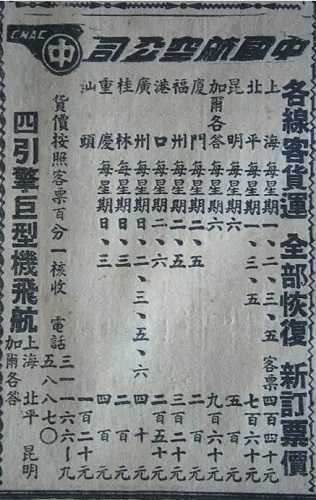 CNAC
中
中國航空公司
各線客貨運 全部恢復 新訂票價
上海 每星期一、二、四、五 客票四百四十元
北平 每星期一、三、五 七百六十元
昆明 每星期六 五百元
加爾各答 每星期六 九百六十元
廈門 每星期二、五
福州 每星期二、五
港口 每星期二、六 二百五十元
廣州 每星期一、二、三、五、六 四十元
桂林 每星期日、三 二百元
重慶 每星期日、三 四百元
汕頭 一百二十元
貨價按照客票百分一核收 電話 三一一六六—九
五八八七〇
四引擎巨型機飛航 上海 北平 昆明
加爾各答